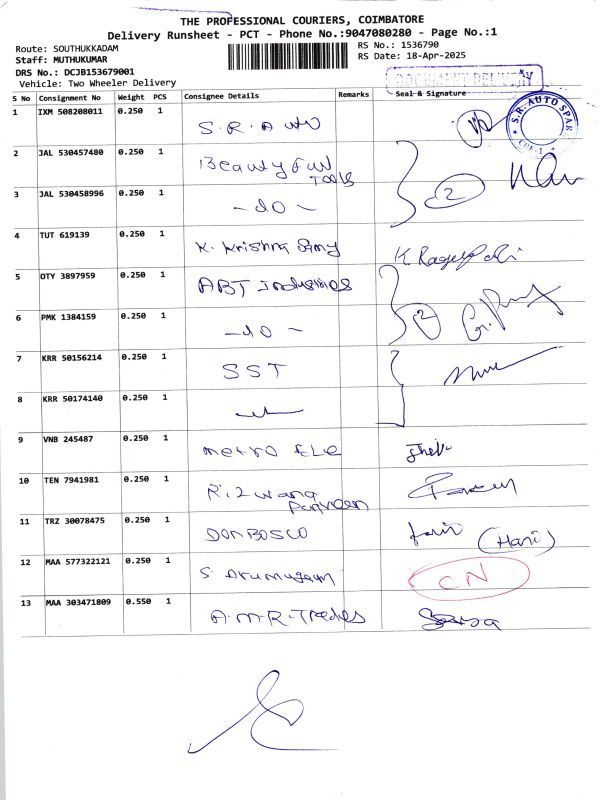 THE PROFESSIONAL COURIERS, COIMBATORE
Delivery Runsheet - PCT - Phone No.:9047080280 - Page No.:1
Route: SOUTHUKKADAM RS No.: 1536790
Staff: MUTHUKUMAR RS Date: 18-Apr-2025
DRS No.: DCJB153679001
Vehicle: Two Wheeler Delivery
DOCUMENT DELIVERY
S No Consignment No Weight PCS Consignee Details Remarks Seal & Signature
1 IXM 508208011 0.250 1 S.R. Auto
S.R. AUTO SPAR
CBE-1
2 JAL 530457480 0.250 1 Beauty Full
Tools 2
3 JAL 530458996 0.250 1 - do -
4 TUT 619139 0.250 1 K. Krishna Samy K
5 OTY 3897959 0.250 1 ABT Industries
6 PMK 1384159 0.250 1 - do - 2
7 KRR 50156214 0.250 1 SST
8 KRR 50174140 0.250 1
9 VNB 245487 0.250 1 metro ELE
10 TEN 7941981 0.250 1 Rizwana
Parveen
11 TRZ 30078475 0.250 1 DON BOSCO (Hani)
12 MAA 577322121 0.250 1 S. Arumugam CN
13 MAA 303471809 0.550 1 A.M.R. Trades